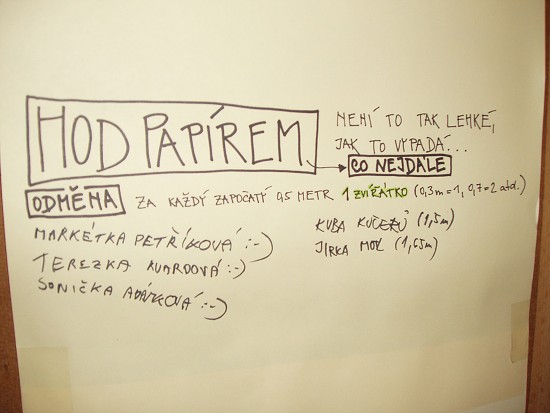 HOD PAPÍREM
NENÍ TO TAK LEHKÉ,
JAK TO VYPADÁ...
CO NEJDÁLE
ODMĚNA ZA KAŽDÝ ZAPOČATÝ 0,5 METR 1 ZVÍŘÁTKO (0,3m=1, 0,7=2 atd.)
MARKÉTKA PETŘÍKOVÁ :-)
TEREZKA KUARDOVÁ :-)
SONIČKA ADÁMKOVÁ :-)
KUBA (1,5m)
JIRKA MOL (1,65m)